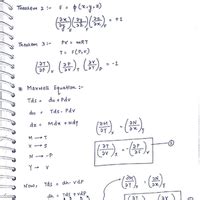 Theorem 2 :- F = φ(x,y,z)
(∂x/∂y)z (∂y/∂z)x (∂z/∂x)y = +1
Theorem 3 :- PV = mRT
T = F(P,V)
(∂T/∂P)v (∂P/∂V)T (∂V/∂T)P = -1
Maxwell Equation :-
Tds = du + Pdv
du = Tds - Pdv
dz = Mdx + Ndy
(∂M/∂y)x = (∂N/∂x)y
M → T
x → S
N → -P
Y → V
(∂T/∂V)s = -(∂P/∂s)v
Now: Tds = dh - vdP
dh = Tds + vdP